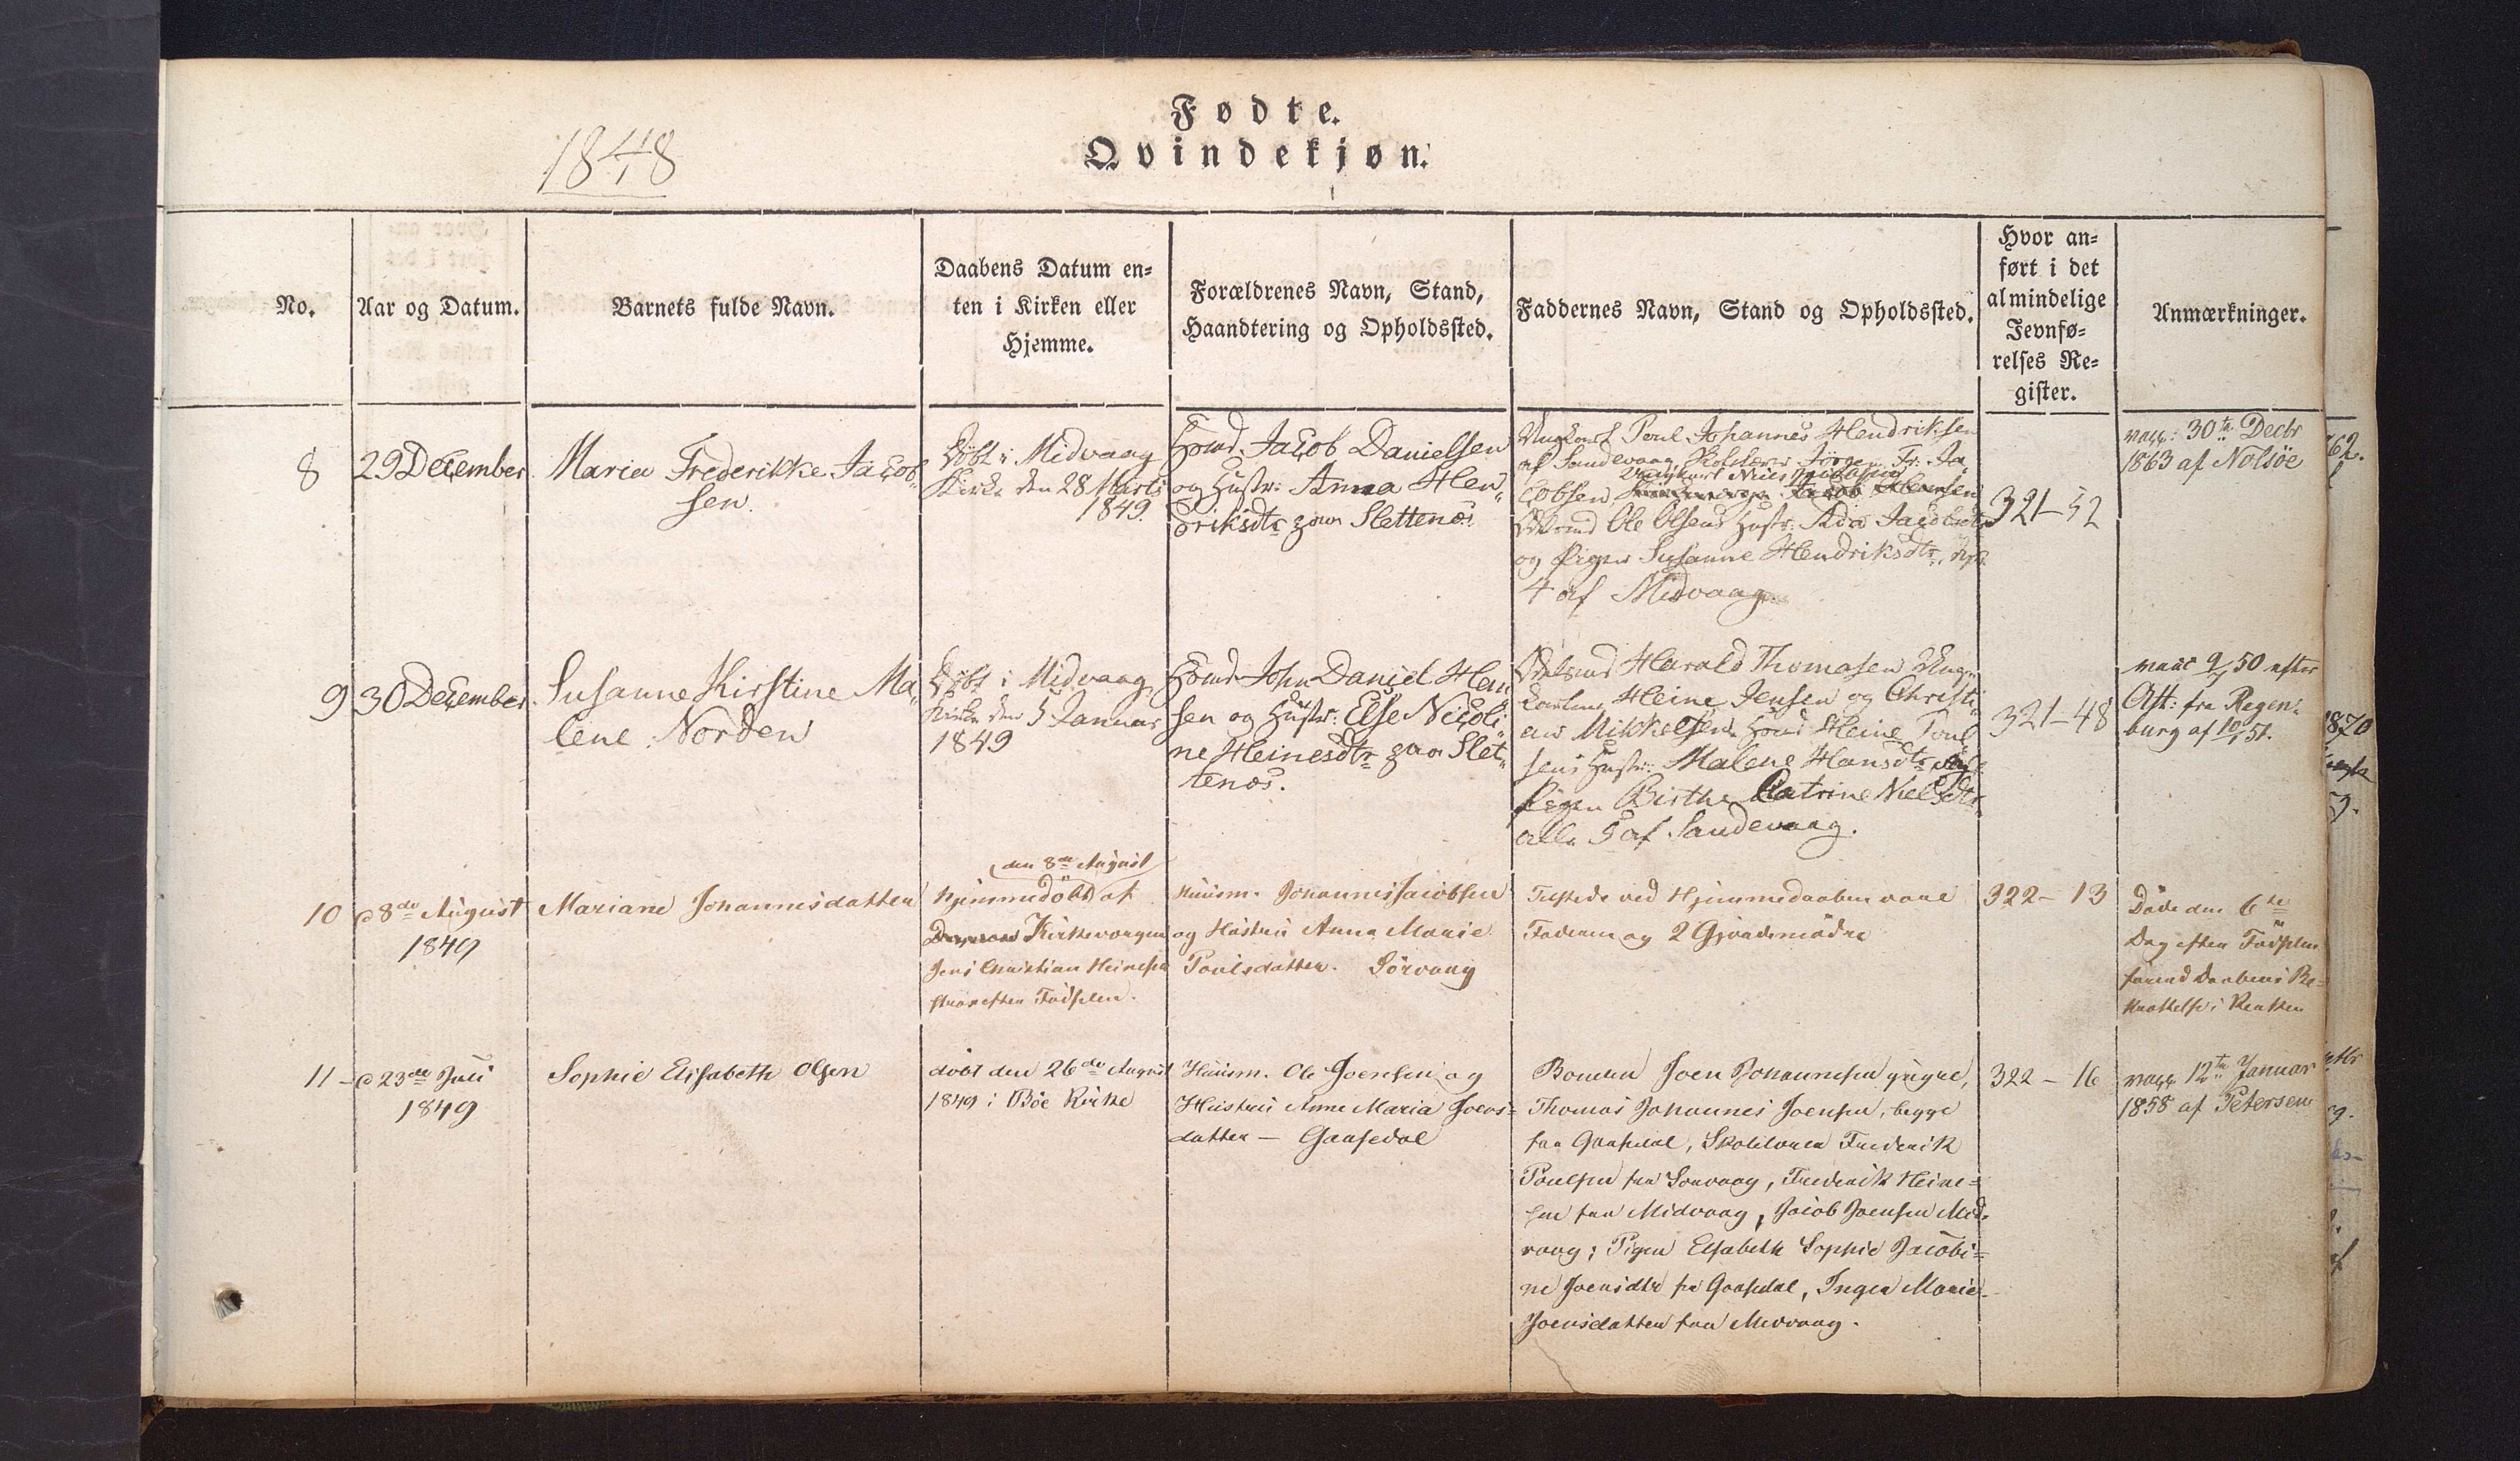 Fødte.
Qvindekjøn.
1848
No.
Aar og Datum.
Barnets fulde Navn.
Daabens Datum en=
ten i Kirken eller
Hjemme.
Forældrenes Navn, Stand,
Haandtering og Opholdssted.
Faddernes Navn, Stand og Opholdssted.
Hvor an=
ført i det
almindelige
Jevnfø=
relses Re=
gister.
Anmærkninger.
8
29 December
Maria Frederikke Jacob-
sen.
Døbt i Midvaag
Kirke den 28 Marts
1849.
Jacob Danielsen
og Hustr: Anna Hen-
driksdtr paa Slettenæs
Ungkarl Poul Johannes Hendriksen
af Sandevaag, Skolelærer Jørgen Fr. Ja-
Ungkarl Niels
cobsen Jacob Hansen
Ole Olsens Hustr: Ada Jacobsdtr
og Pigen Susanne Hendriksdtr,
4 af Midvaag.
321-52
vacc: 30te Decbr
1863 af Nolsöe
9
30 December
Susanne Kirstine Ma-
lene Norden
Døbt i Midvaag
Kirke den 5 Januar
1849
John Daniel Han-
sen og Hustr: Else Nicoli-
ne Heinesdtr paa Slet-
tenæs.
Harald Thomasen Ung-
karlene Heine Jensen og Christi-
an Mikkelsen, Heine Poul-
sens Hustr: Malene Hansdtr, og
Pigen Birthe Catrine Nielsdtr
alle 5 af Sandevaag.
321-48
vacc 9/7 50 efter
Att: fra Regen-
burg af 10/1 51.
10
d 8de August
1849
Mariane Johannesdatter
den 8de August
hjemmedöbt af
Kirkeværgen
Jens Christian Heinesen
strax efter Fødselen.
Huusm. Johannes Jacobsen
og Hustru Anna Marie
Poulsdatter. Sörvaag
Tilstede ved Hjemmedaaben vare
Faderen og 2 Gjordemödre
322 - 13
Döde den 6te
Dag efter Fødselen
forend Daabens Be=
kræftelse i Kirken
11
d 23de Juli
1849
Sophie Elisabeth Olsen
døbt den 26de August
1849 i Böe Kirke
Huusm. Ole Joensen og
Hustru Anne Maria Joens=
datter - Gaasedal
Bonden Joen Johannesen yngre,
Thomas Johannes Joensen, begge
fra Gaasedal, Skolelærer Frederik
Poulsen fra Sorvaag, Frederik Heine=
sen fra Midvaag, Jacob Joensen Mid-
vaag; Pigen Elsabeth Sophie Jacobi=
ne Joensdtr fra Gaasedal, Inger Marie
Joensdatter fra Midvaag.
322 - 16
vacc 12te Januar
1858 af Petersen
62.
1870